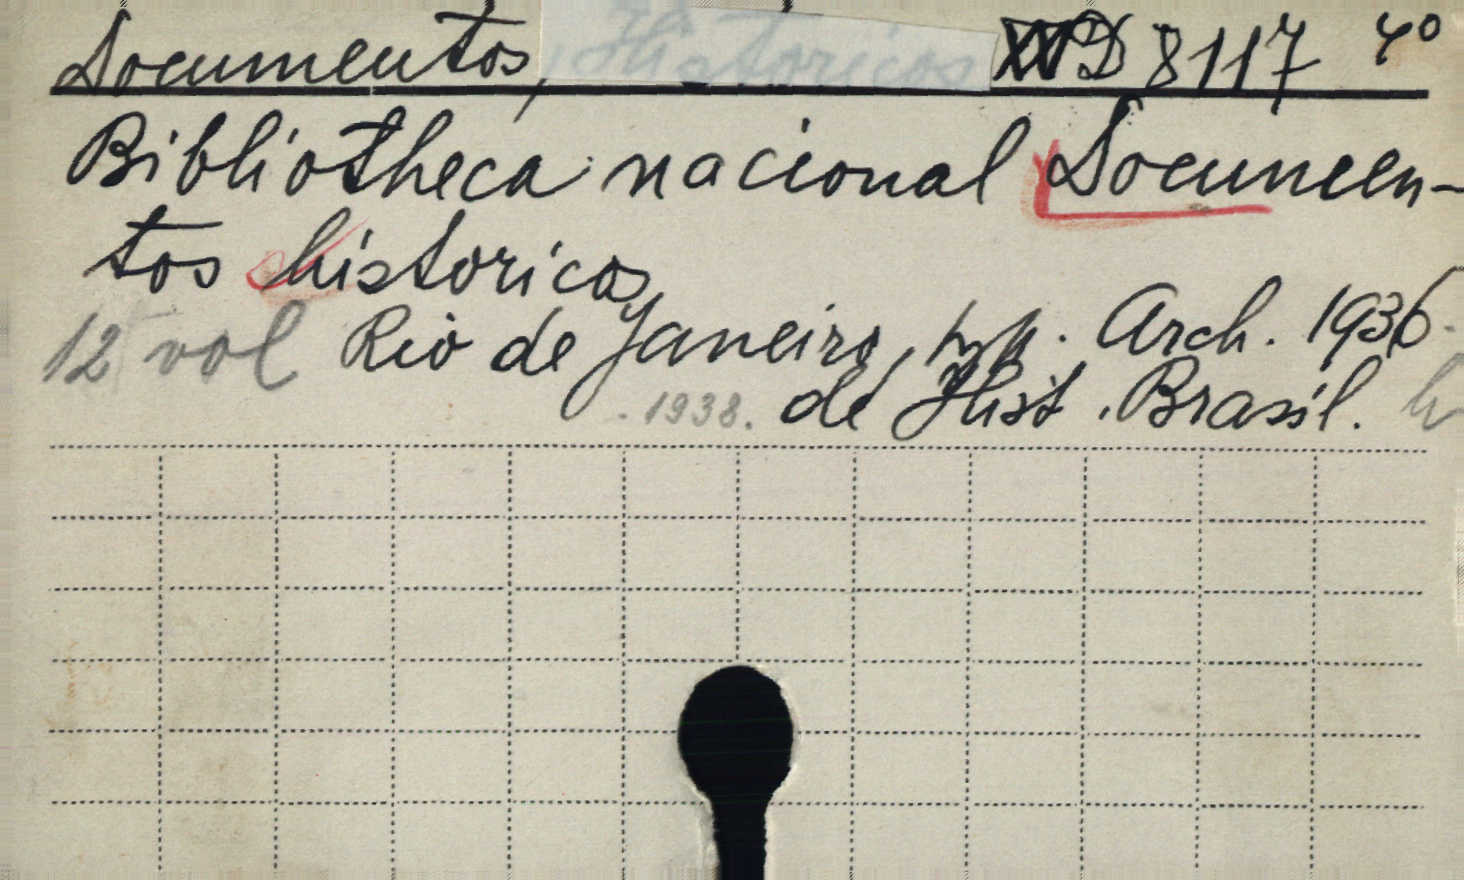 Documentos, D 8117 4°
Bibliotheca nacional Documen-
tos historicos
12 vol Rio de Janeiro, typ. Arch. 1936
-1938. de Hist. Brasil.